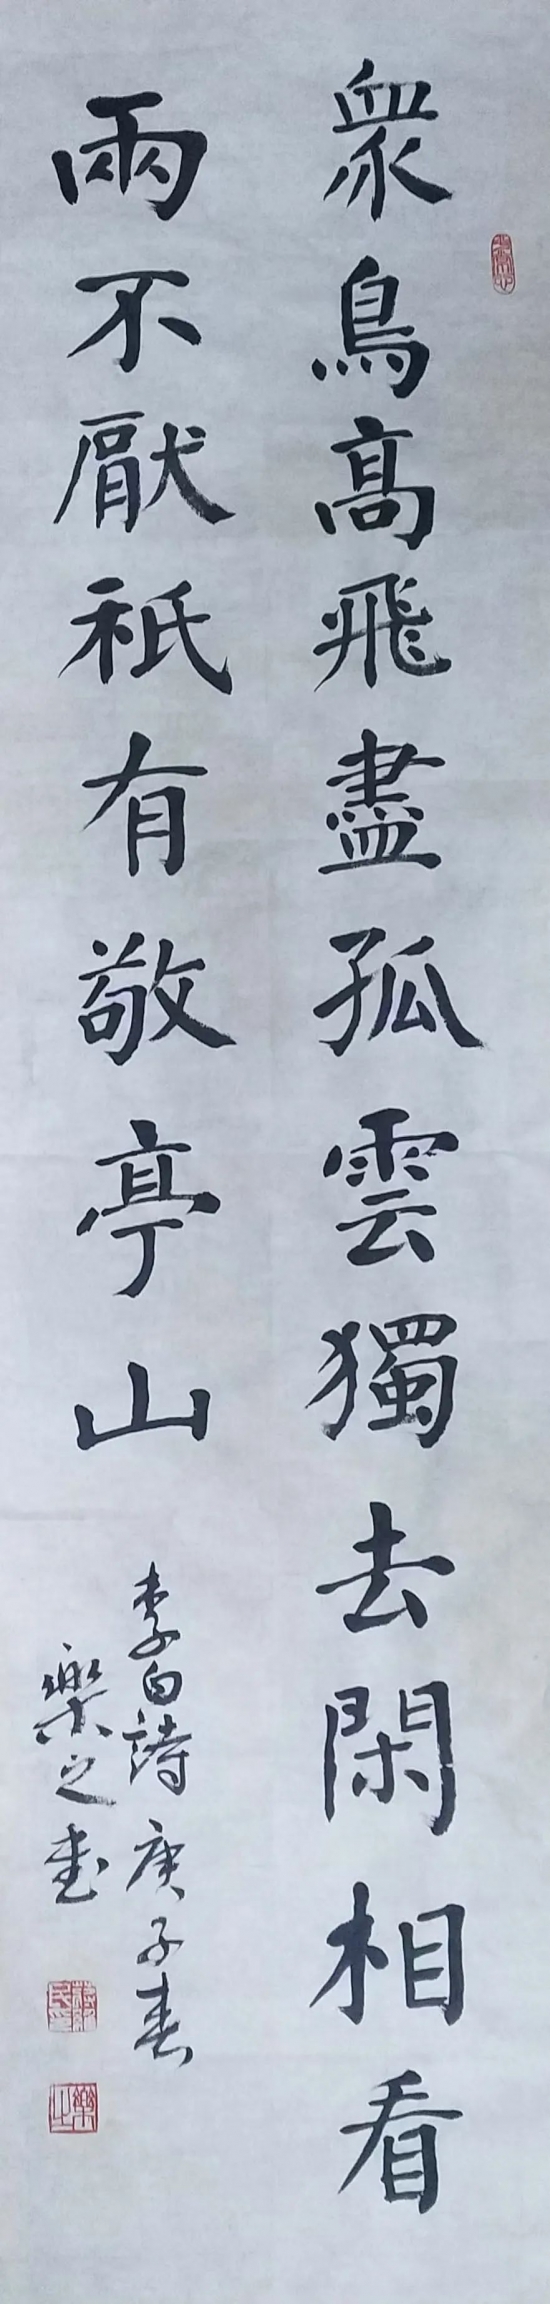 衆鳥高飛盡孤雲獨去閑相看
兩不厭祇有敬亭山
李白詩庚子春
樂之書
樂之